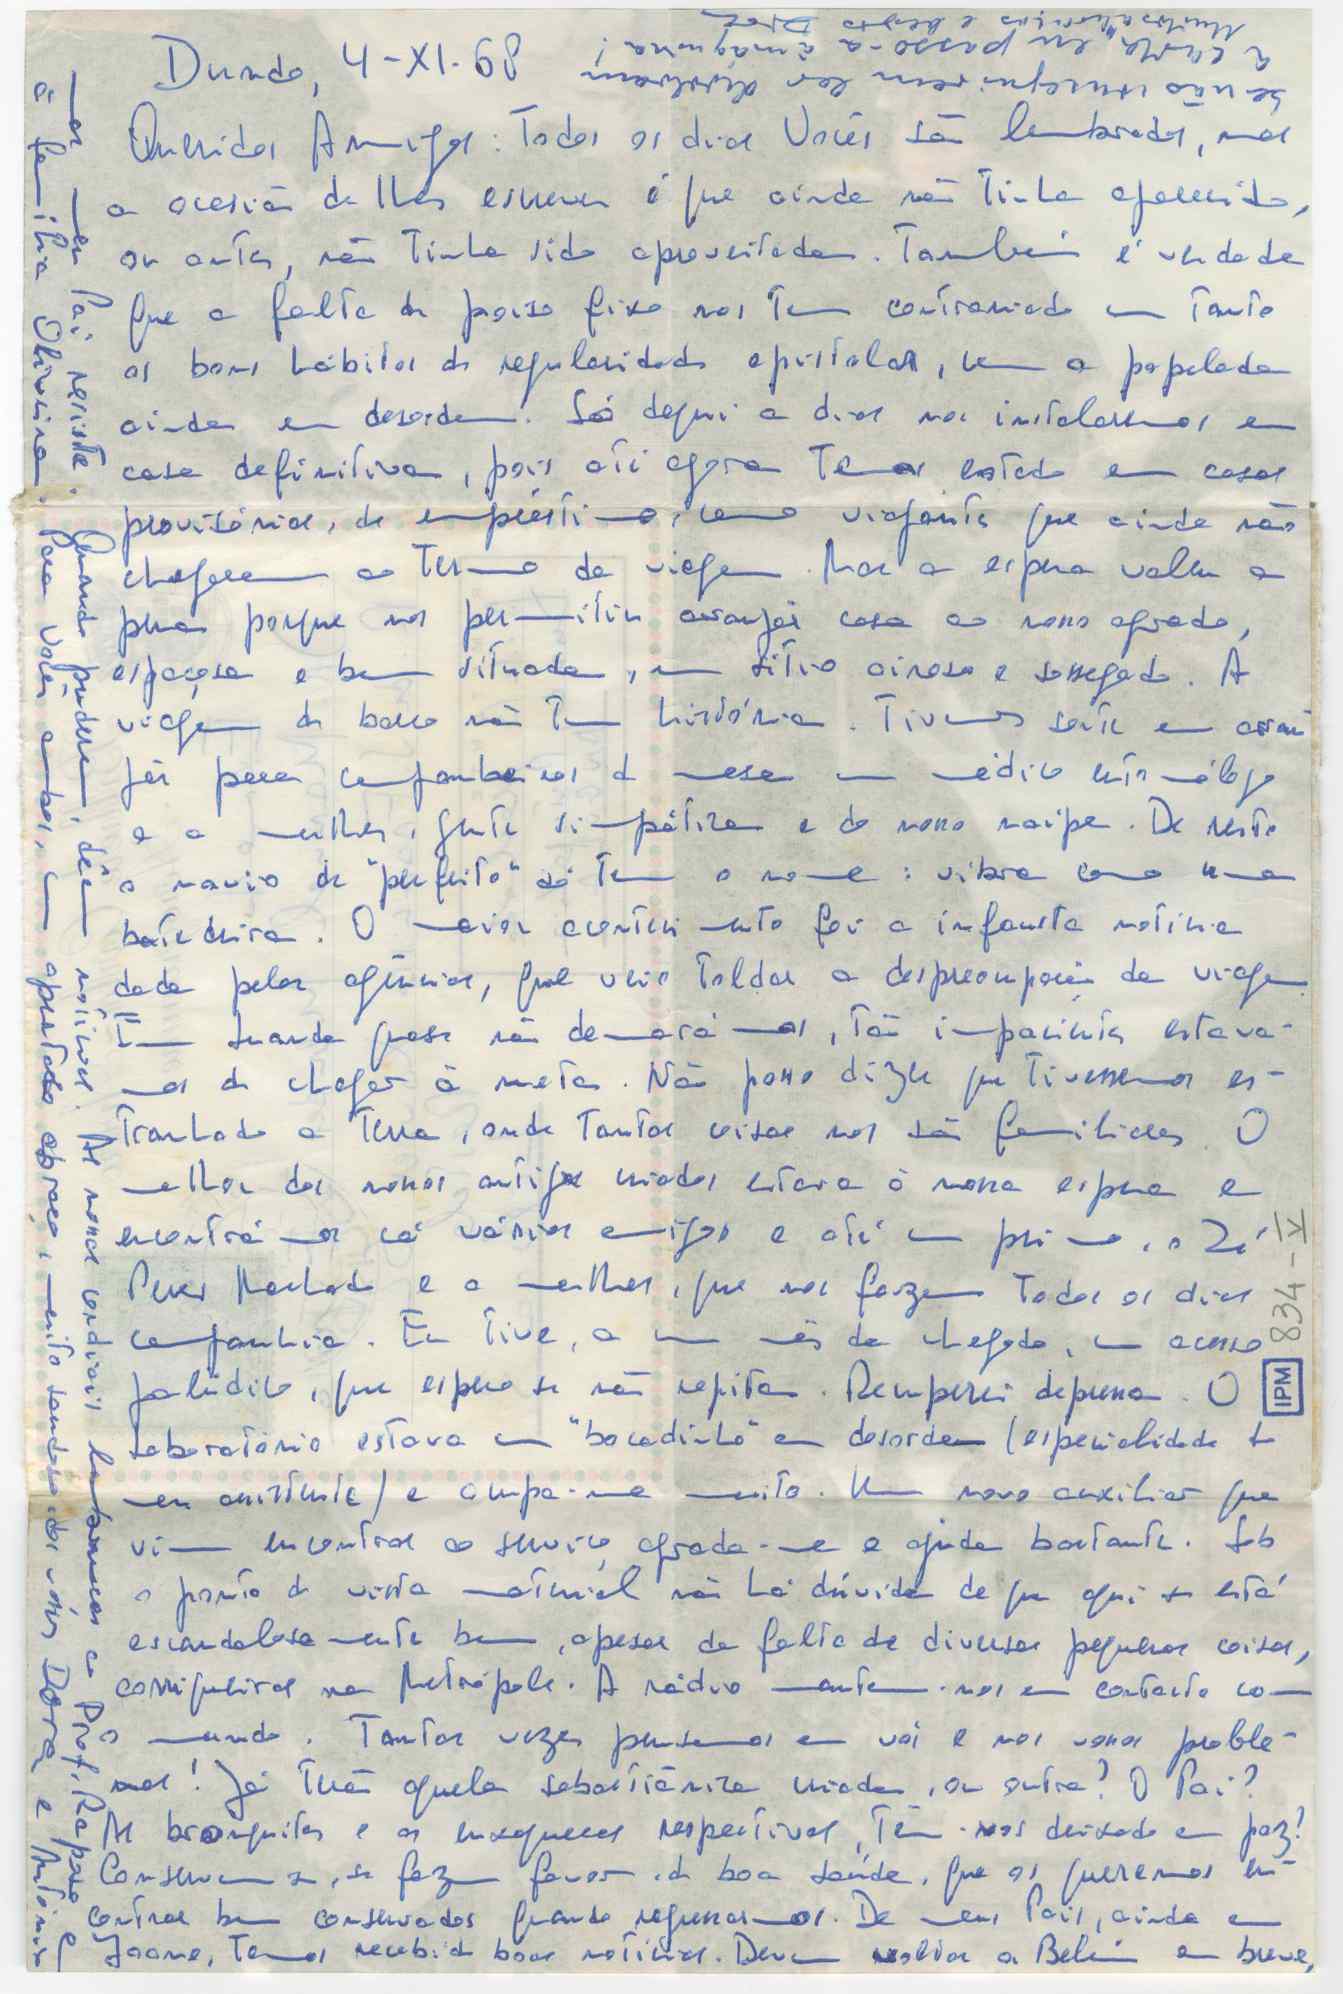 Dundo, 4-XI-68
Queridos Amigos: Todos os dias Vocês são lembrados, mas
a ocasião de lhes escrever é que ainda não tinha aparecido,
ou antes, não tinha sido aproveitada. Também é verdade
que a falta de pouso fixo nos tem contrariado um tanto
os bons hábitos de regularidade epistolar, com a papelada
ainda em desordem. Só daqui a dias nos instalaremos em
casa definitiva, pois até agora temos estado em casas
provisórias, de empréstimo, como viajantes que ainda não
chegaram ao termo da viagem. Mas a espera valeu a
pena porque nos permitiu arranjar casa ao nosso agrado,
espaçosa e bem situada, em sítio airoso e sossegado. A
viagem de barco não tem história. Tivemos sorte em arran
jar para companheiros de mesa um médico
e a mulher, gente simpática e do nosso naipe. De resto
o navio de "perfeito" só tem o nome: vibra como uma
batedeira. O maior acontecimento foi a infausta notícia
dada pelas agências, que veio toldar a despreocupação da viagem.
Em Luanda quase não demorámos, tão impacientes estáva-
mos de chegar à meta. Não posso dizer que tivéssemos es-
tranhado a terra, onde tantas coisas nos são familiares. O
melhor dos nossos antigos criados estava à nossa espera e
encontrámos cá vários amigos e até um primo, o Zé
Peres Machado e a mulher, que nos fazem todos os dias
companhia. Eu tive, a um mês da chegada, um acesso
palúdico, que espero se não repita. Recuperei depressa. O
Laboratório estava um "bocadinho" em desordem (especialidade do
meu assistente) e ocupa-me muito. Um novo auxiliar que
vim encontrar ao serviço agrada-me e ajuda bastante. Sob
o ponto de vista material não há dúvida de que aqui se está
escandalosamente bem, apesar da falta de diversas pequenas coisas,
corriqueiras na Metrópole. A rádio mantem-nos em contacto com
o mundo. Tantas vezes pensamos em vós e nos vossos proble-
mas! Já terão aquela sebastiânica criada, ou outra? O Pai?
As bronquites e as enxaquecas respectivas, têm-nos deixado em paz?
Conservem-se, se fazem favor, de boa saúde, que os queremos en-
contrar bem conservados quando regressarmos. De meus Pais, ainda em
Joane, temos recebido boas notícias. Devem voltar a Belém em breve,
meu Pai resiste. Quando puderem, dêem notícias. As nossas cordiais lembranças ao Prof. Raposo e
à família Oliveira. Para Vocês ambos, um apertado abraço, muito saudoso, dos vossos Dora e António
Se não conseguirem ler devolvam
a carta, eu passo-a à máquina!
Muitas saudades e beijos Dora
834-IV
IPM